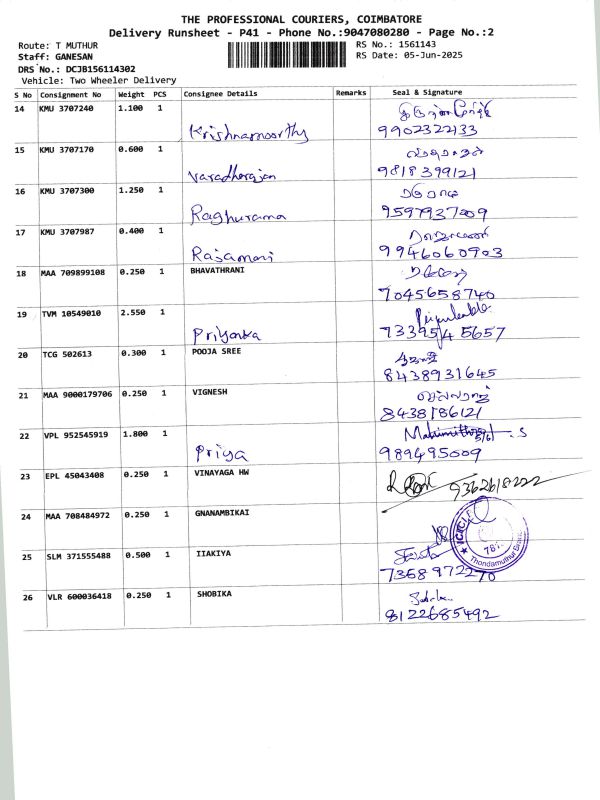 THE PROFESSIONAL COURIERS, COIMBATORE
Delivery Runsheet - P41 - Phone No.:9047080280 - Page No.:2
Route: T MUTHUR
RS No.: 1561143
Staff: GANESAN
RS Date: 05-Jun-2025
DRS No.: DCJB156114302
Vehicle: Two Wheeler Delivery
S No Consignment No Weight PCS Consignee Details Remarks Seal & Signature
14 KMU 3707240 1.100 1
Krishnamoorthy 9902322133
15 KMU 3707170 0.600 1
Varadharajan 9818399121
16 KMU 3707300 1.250 1
Raghurama 9597937009
17 KMU 3707987 0.400 1
Rajamani 9946060903
18 MAA 709899108 0.250 1 BHAVATHRANI
7045658740
19 TVM 10549010 2.550 1
Priyanka 7339514 5657
20 TCG 502613 0.300 1 POOJA SREE
8438931645
21 MAA 9000179706 0.250 1 VIGNESH
8438186121
22 VPL 952545919 1.800 1
Priya 989495009
23 EPL 45043408 0.250 1 VINAYAGA HW
9362618222
24 MAA 708484972 0.250 1 GNANAMBIKAI
ICICI
Thondamuthur
25 SLM 371555488 0.500 1 IIAKIYA
7368 972270
26 VLR 600036418 0.250 1 SHOBIKA
8122685492